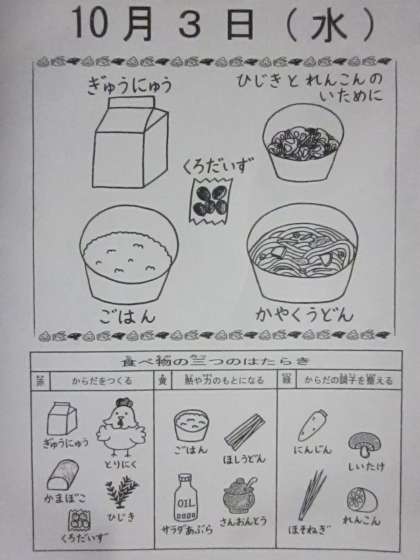 10月3日(水)
ぎゅうにゅう
ひじきと れんこんの
いために
くろだいず
ごはん
かやくうどん
食べ物の三つのはたらき
赤 からだをつくる
黄 熱や力のもとになる
緑 からだの調子を整える
ぎゅうにゅう
とりにく
かまぼこ
ひじき
くろだいず
ごはん
ほしうどん
OIL
サラダあぶら
さんおんとう
にんじん
しいたけ
ほそねぎ
れんこん